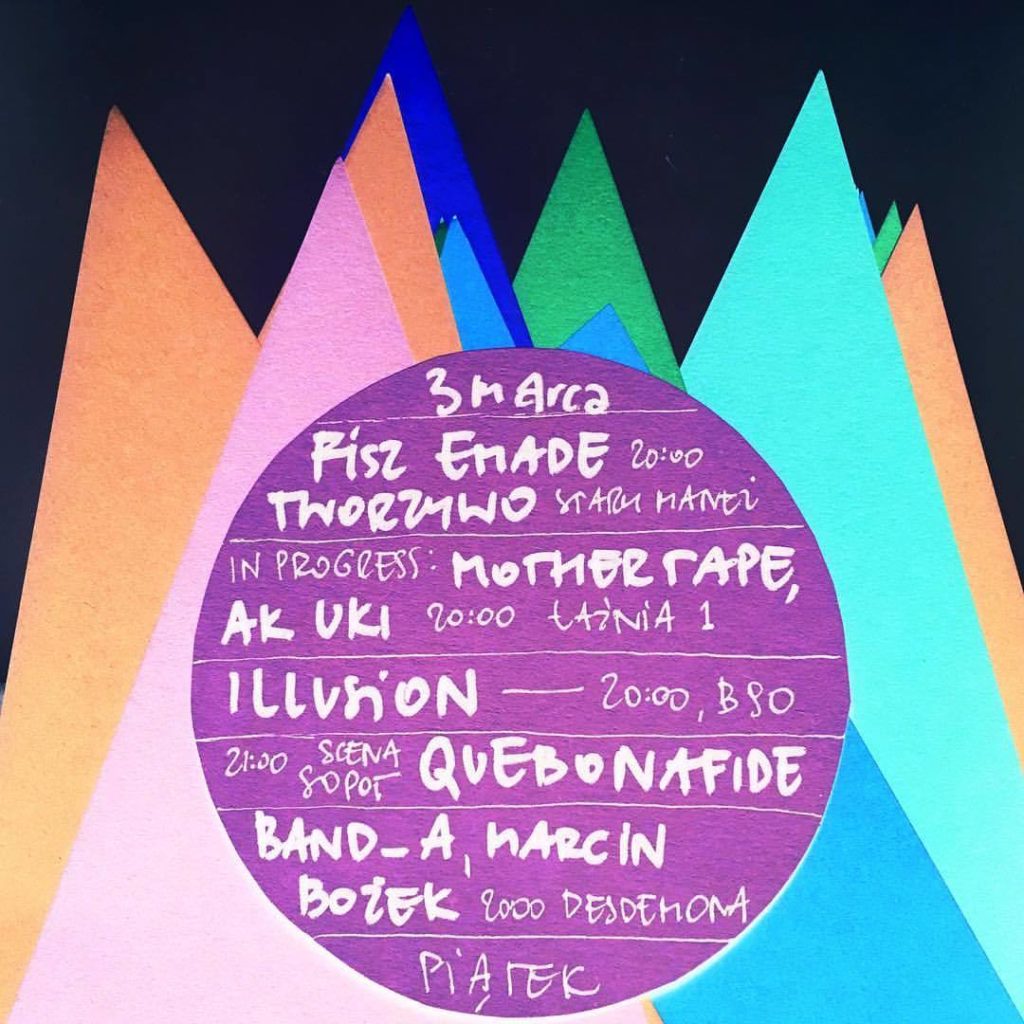 3 marca
Fisz EMADE 20:00
TWORZYWO STARY MANEŻ
IN PROGRESS: MOTHER TAPE,
AK UKI 20:00 ŁAŹNIA 1
ILLUSiON — 20:00, B90
21:00 SCENA SOPOT QUEBONAFIDE
BAND_A, MARCIN
BOŻEK 2000 DESDEMONA
PiĄTEK